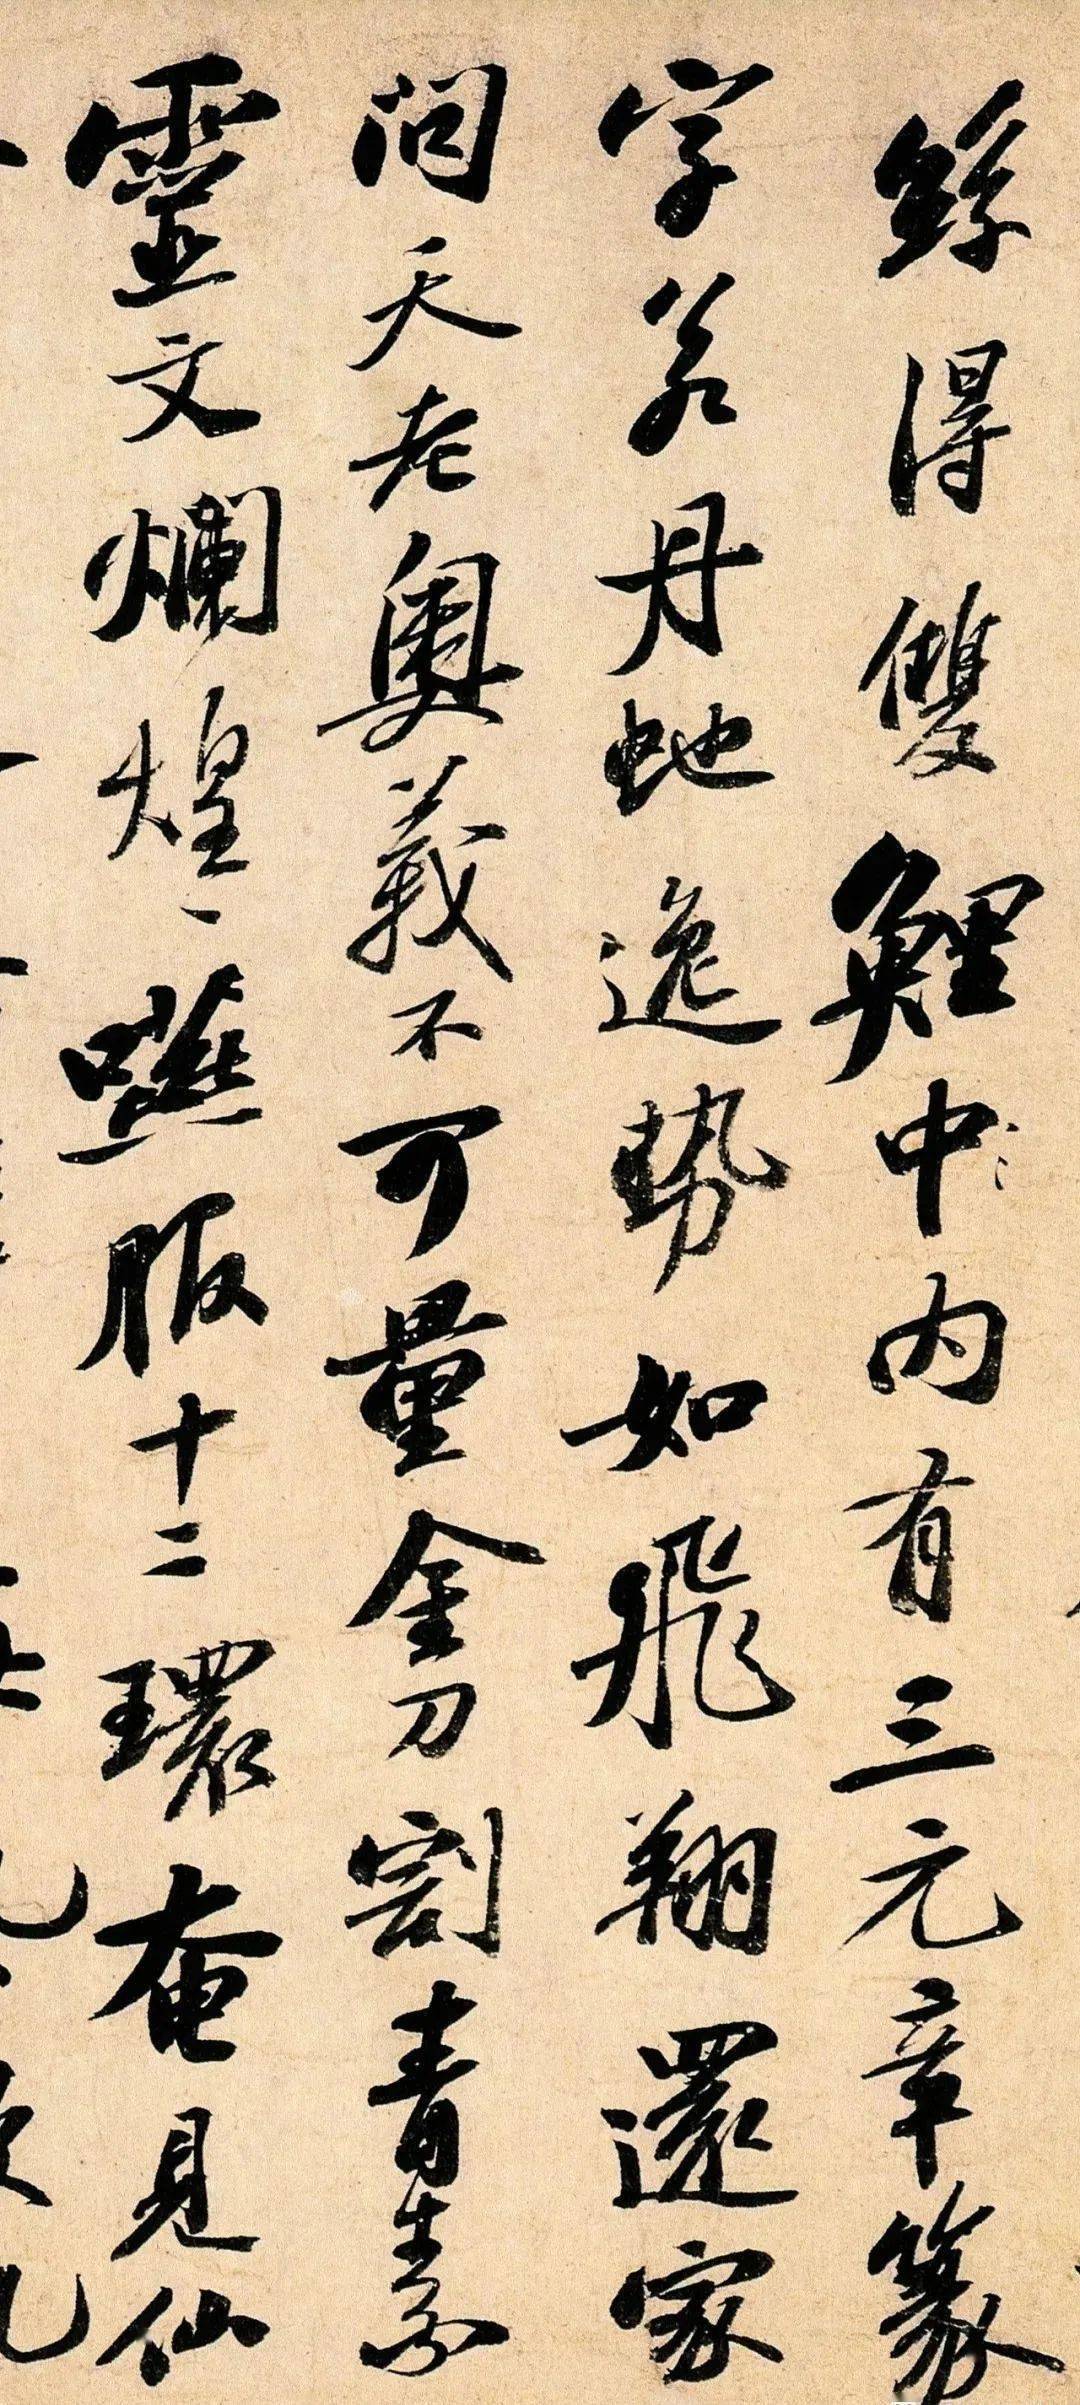 絲得雙鯉中内有三元章篆
字若丹虵逸勢如飛翔還家
問天老奥義不可量金刀割青素
靈文爛煌〻嚥服十二環奄見仙